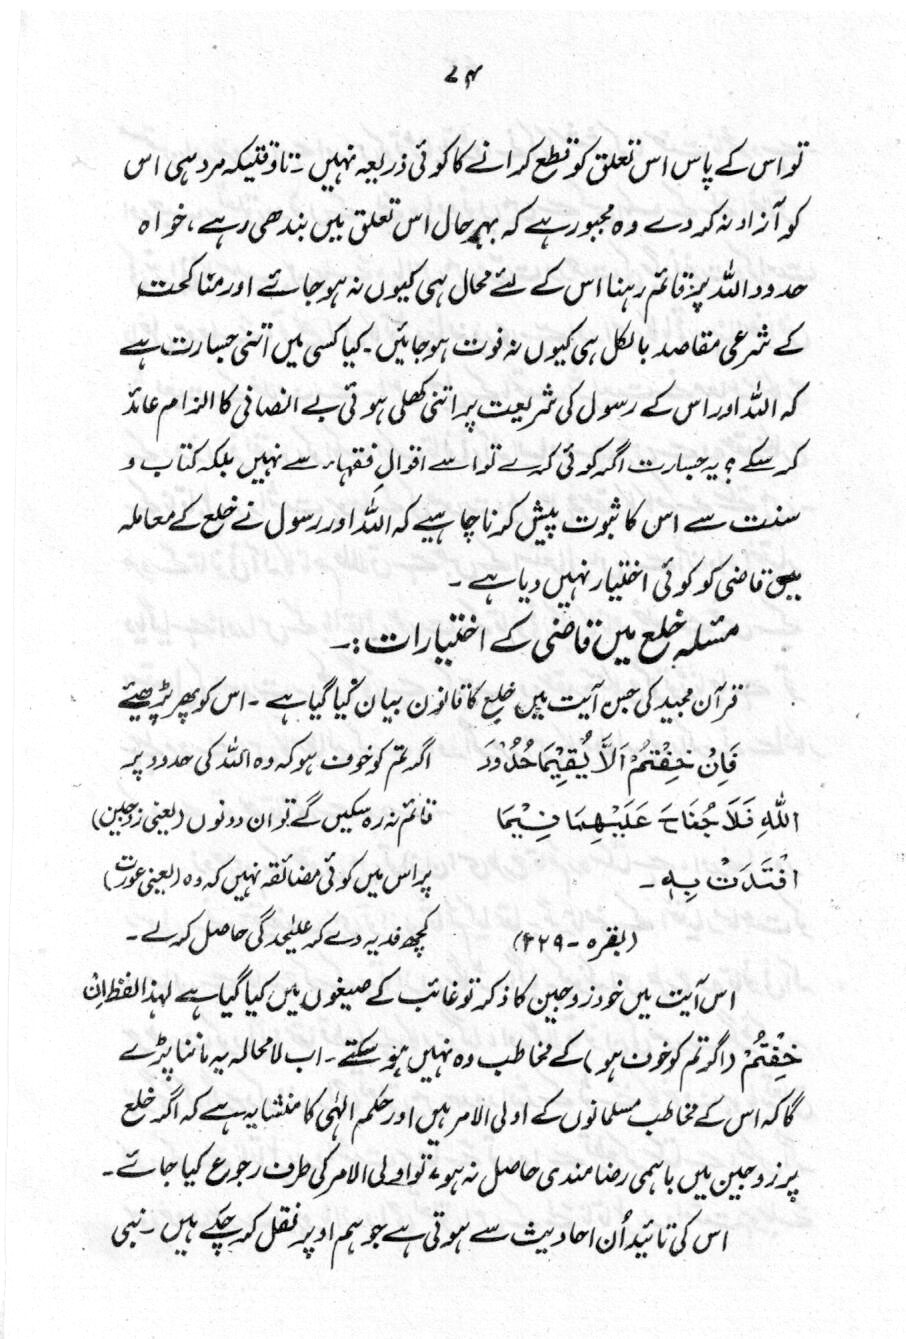 ۷۴
تو اس کے پاس اس تعلق کو قطع کرانے کا کوئی ذریعہ نہیں ۔ تاوقتیکہ مرد ہی اس
کو آزاد نہ کر دے وہ مجبور ہے کہ بہر حال اس تعلق میں بندھی رہے ، خواہ
حدود اللہ پر قائم رہنا اس کے لئے محال ہی کیوں نہ ہو جائے اور مناکحت
کے شرعی مقاصد بالکل ہی کیوں نہ فوت ہو جائیں ۔ کیا کسی میں اتنی جسارت ہے
کہ اللہ اور اس کے رسول کی شریعت پر اتنی کھلی ہوئی بے انصافی کا الزام عائد
کر سکے ؟ یہ جسارت اگر کوئی کرے تو اسے اقوال فقہاء سے نہیں بلکہ کتاب و
سنت سے اس کا ثبوت پیش کرنا چاہیے کہ اللہ اور رسول نے خلع کے معاملہ
میں قاضی کو کوئی اختیار نہیں دیا ہے ۔
مسئلہ خلع میں قاضی کے اختیارات :۔
قرآن مجید کی جس آیت میں خلع کا قانون بیان کیا گیا ہے ۔ اس کو پھر پڑھیئے
فَاِنْ خِفْتُمْ اَلَّا يُقِيْمَا حُدُوْدَ اگر تم کو خوف ہو کہ وہ اللہ کی حدود پر
اللّٰهِ فَلَا جُنَاحَ عَلَيْهِمَا فِيْمَا قائم نہ رہ سکیں گے تو ان دونوں (یعنی زوجین)
افْتَدَتْ بِهٖ ۔ پر اس میں کوئی مضائقہ نہیں کہ وہ (یعنی عورت)
(بقرہ - ۲۲۹) کچھ فدیہ دے کر علیٰحدگی حاصل کر لے ۔
اس آیت میں خود زوجین کا ذکر تو غائب کے صیغوں میں کیا گیا ہے لہذا لفظ اِنْ
خِفْتُمْ (اگر تم کو خوف ہو) کے مخاطب وہ نہیں ہو سکتے ۔ اب لامحالہ یہ ماننا پڑے
گا کہ اس کے مخاطب مسلمانوں کے اولی الامر ہیں اور حکم الہٰی کا منشا یہ ہے کہ اگر خلع
پر زوجین میں باہمی رضامندی حاصل نہ ہو ، تو اولی الامر کی طرف رجوع کیا جائے ۔
اس کی تائید اُن احادیث سے ہوتی ہے جو ہم اوپر نقل کر چکے ہیں ۔ نبی